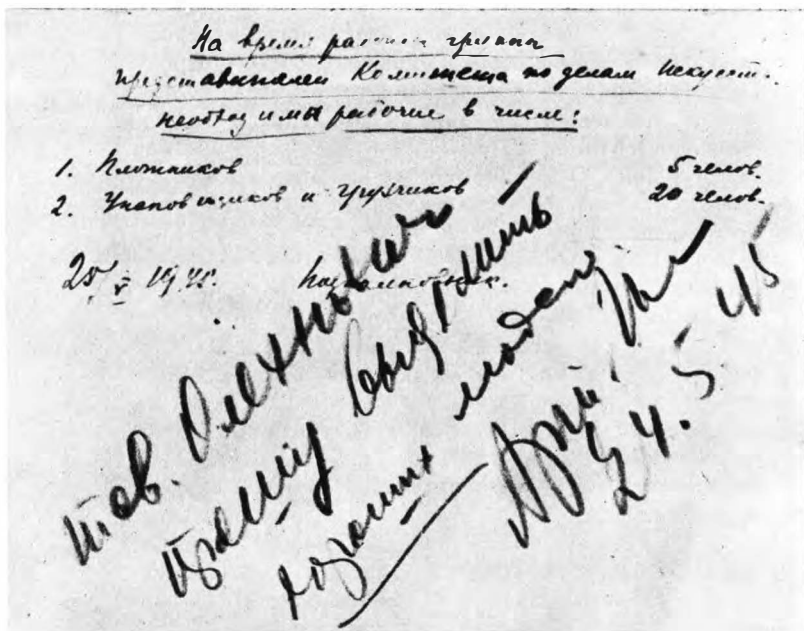 На время работы группы
представителей Комитета по делам Искусств.
необходимы рабочие в числе:
1. Плотников 5 челов.
2. Упаковщиков и грузчиков 20 челов.
19 45.
тов.
прошу выделить
хороших людей
24.5 45